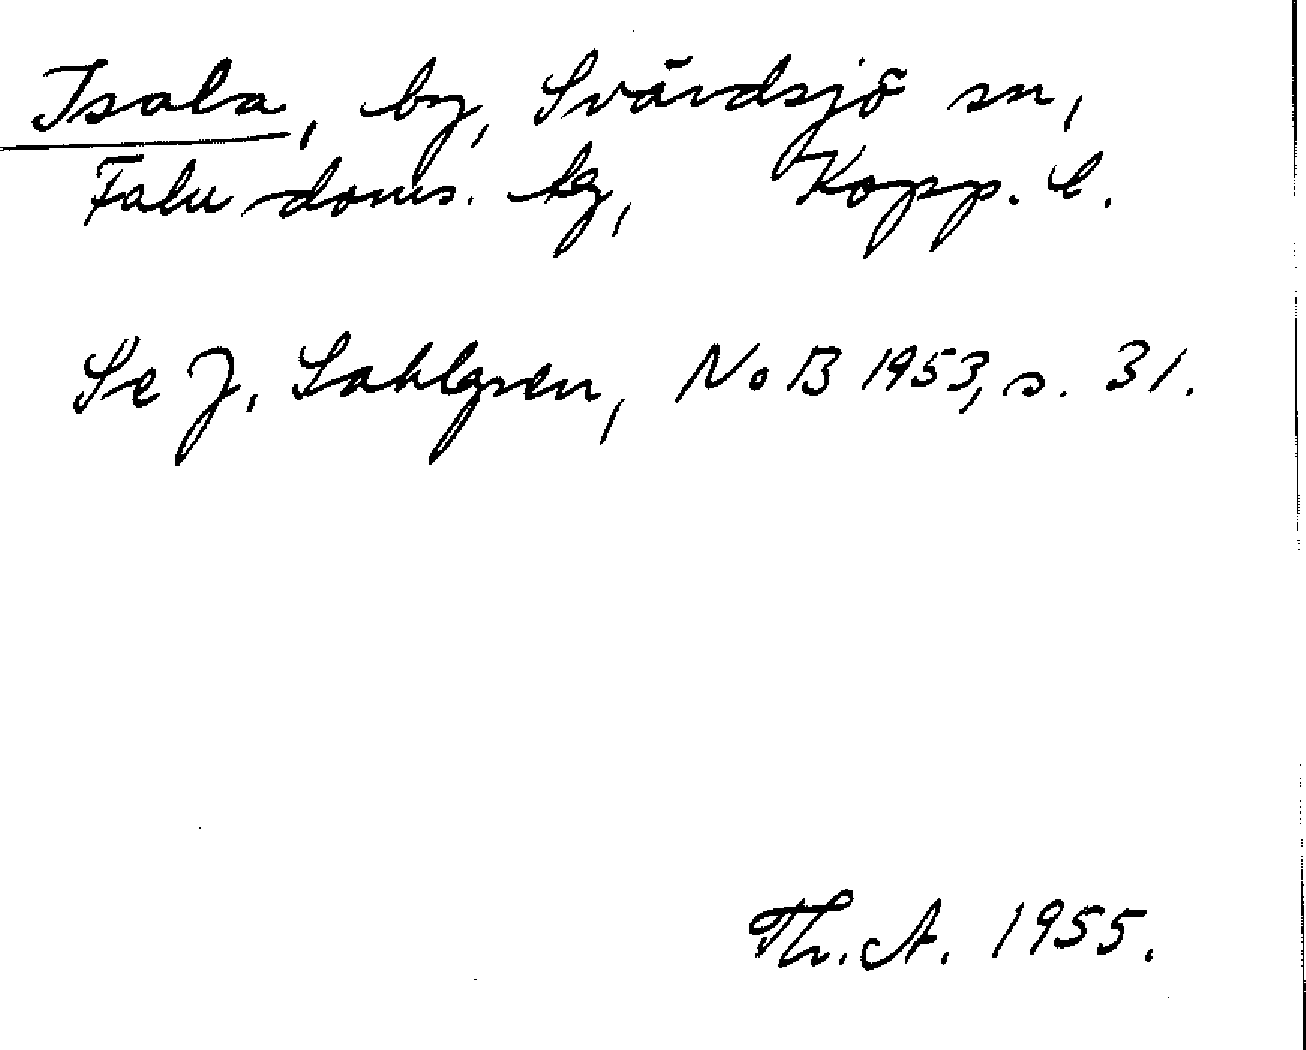 Isala, by, Svärdsjö sn,
Falu doms. tg, Kopp. l.
Se J. Sahlgren, NoB 1953, s. 31.
Th. A. 1955.